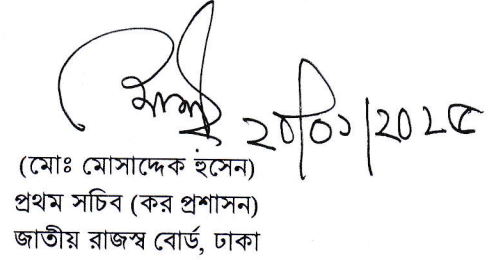 ২০/০১/২০২৫
(মোঃ মোসাদ্দেক হুসেন)
প্রথম সচিব (কর প্রশাসন)
জাতীয় রাজস্ব বোর্ড, ঢাকা